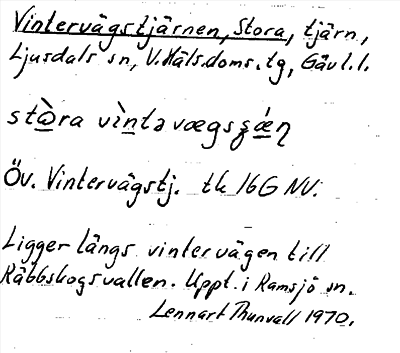 Vintervägstjärnen, Stora, tjärn,
Ljusdals sn, V. Häls.doms. tg, Gävl.l.
stꜵ̀ra vìntəvægsʂǽŋ
Öv. Vintervägstj. tk 16G NV.
Ligger längs vintervägen till
Räbbskogsvallen. Uppt. i Ramsjö sn.
Lennart Thunvall 1970.